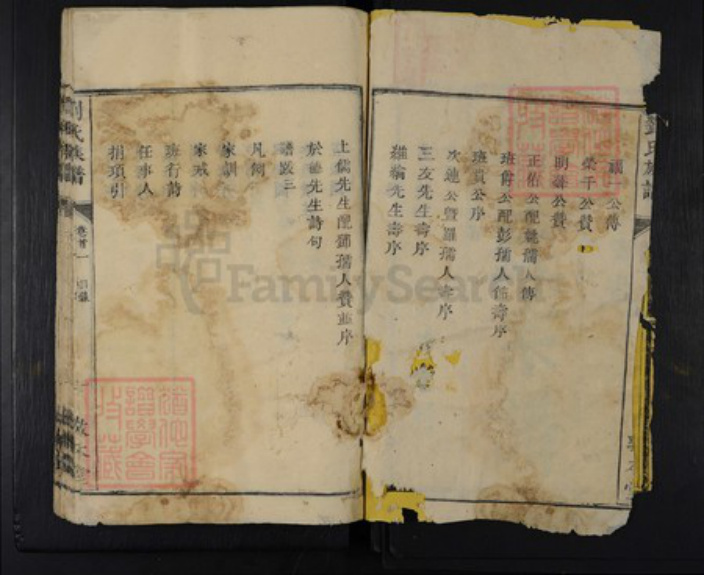 公傳
榮千公贊
明　公贊
正佑公配姚孺人傳
班爵公配彭孺人節壽序
班貴公序
次蓮公暨羅孺人壽序
三友先生壽序
先生壽序
上儒先生配鄧孺人贊並序
於　先生詩句
譜跋三
凡例
家訓
家戒
班行詩
任事人
捐項引
劉氏族譜
卷首一
目錄
FamilySearch